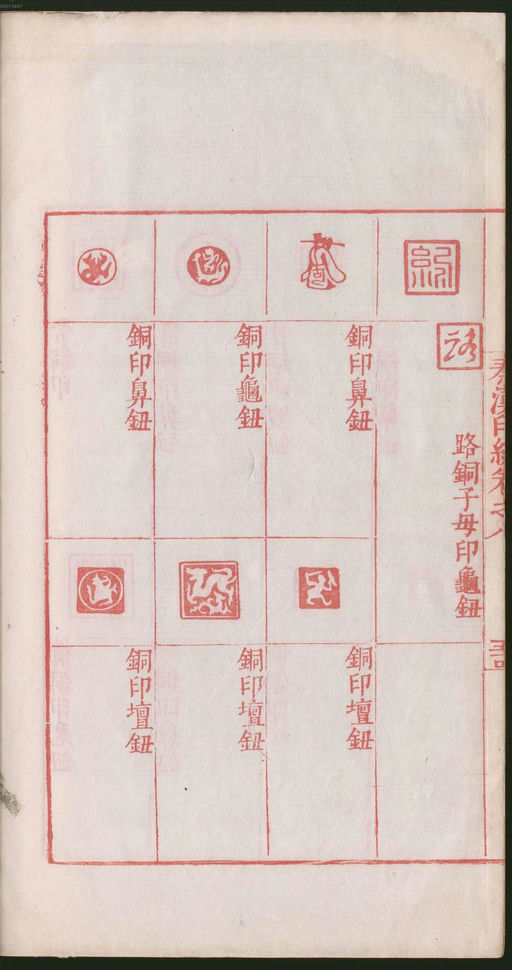 秦漢印統卷之八
路銅子母印龜鈕
銅印鼻鈕
銅印龜鈕
銅印鼻鈕
銅印壇鈕
銅印壇鈕
銅印壇鈕